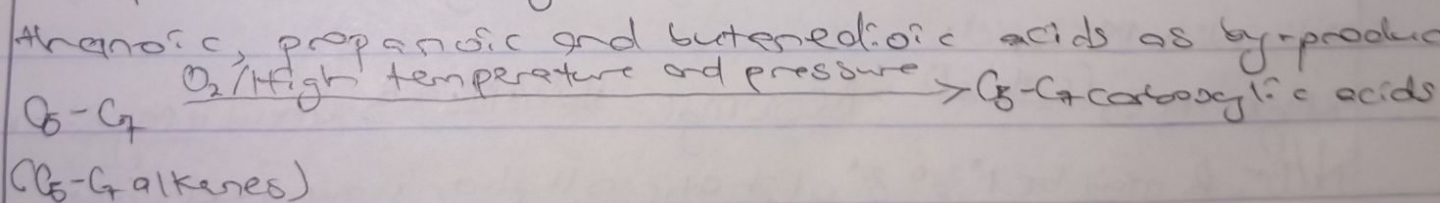 thanoic, propanoic and butenedioic acids as by-produc
O₂/High temperature and pressure
C₅-C₇ → C₅-C₇ carboxylic acids
(C₅-C₇ alkanes)